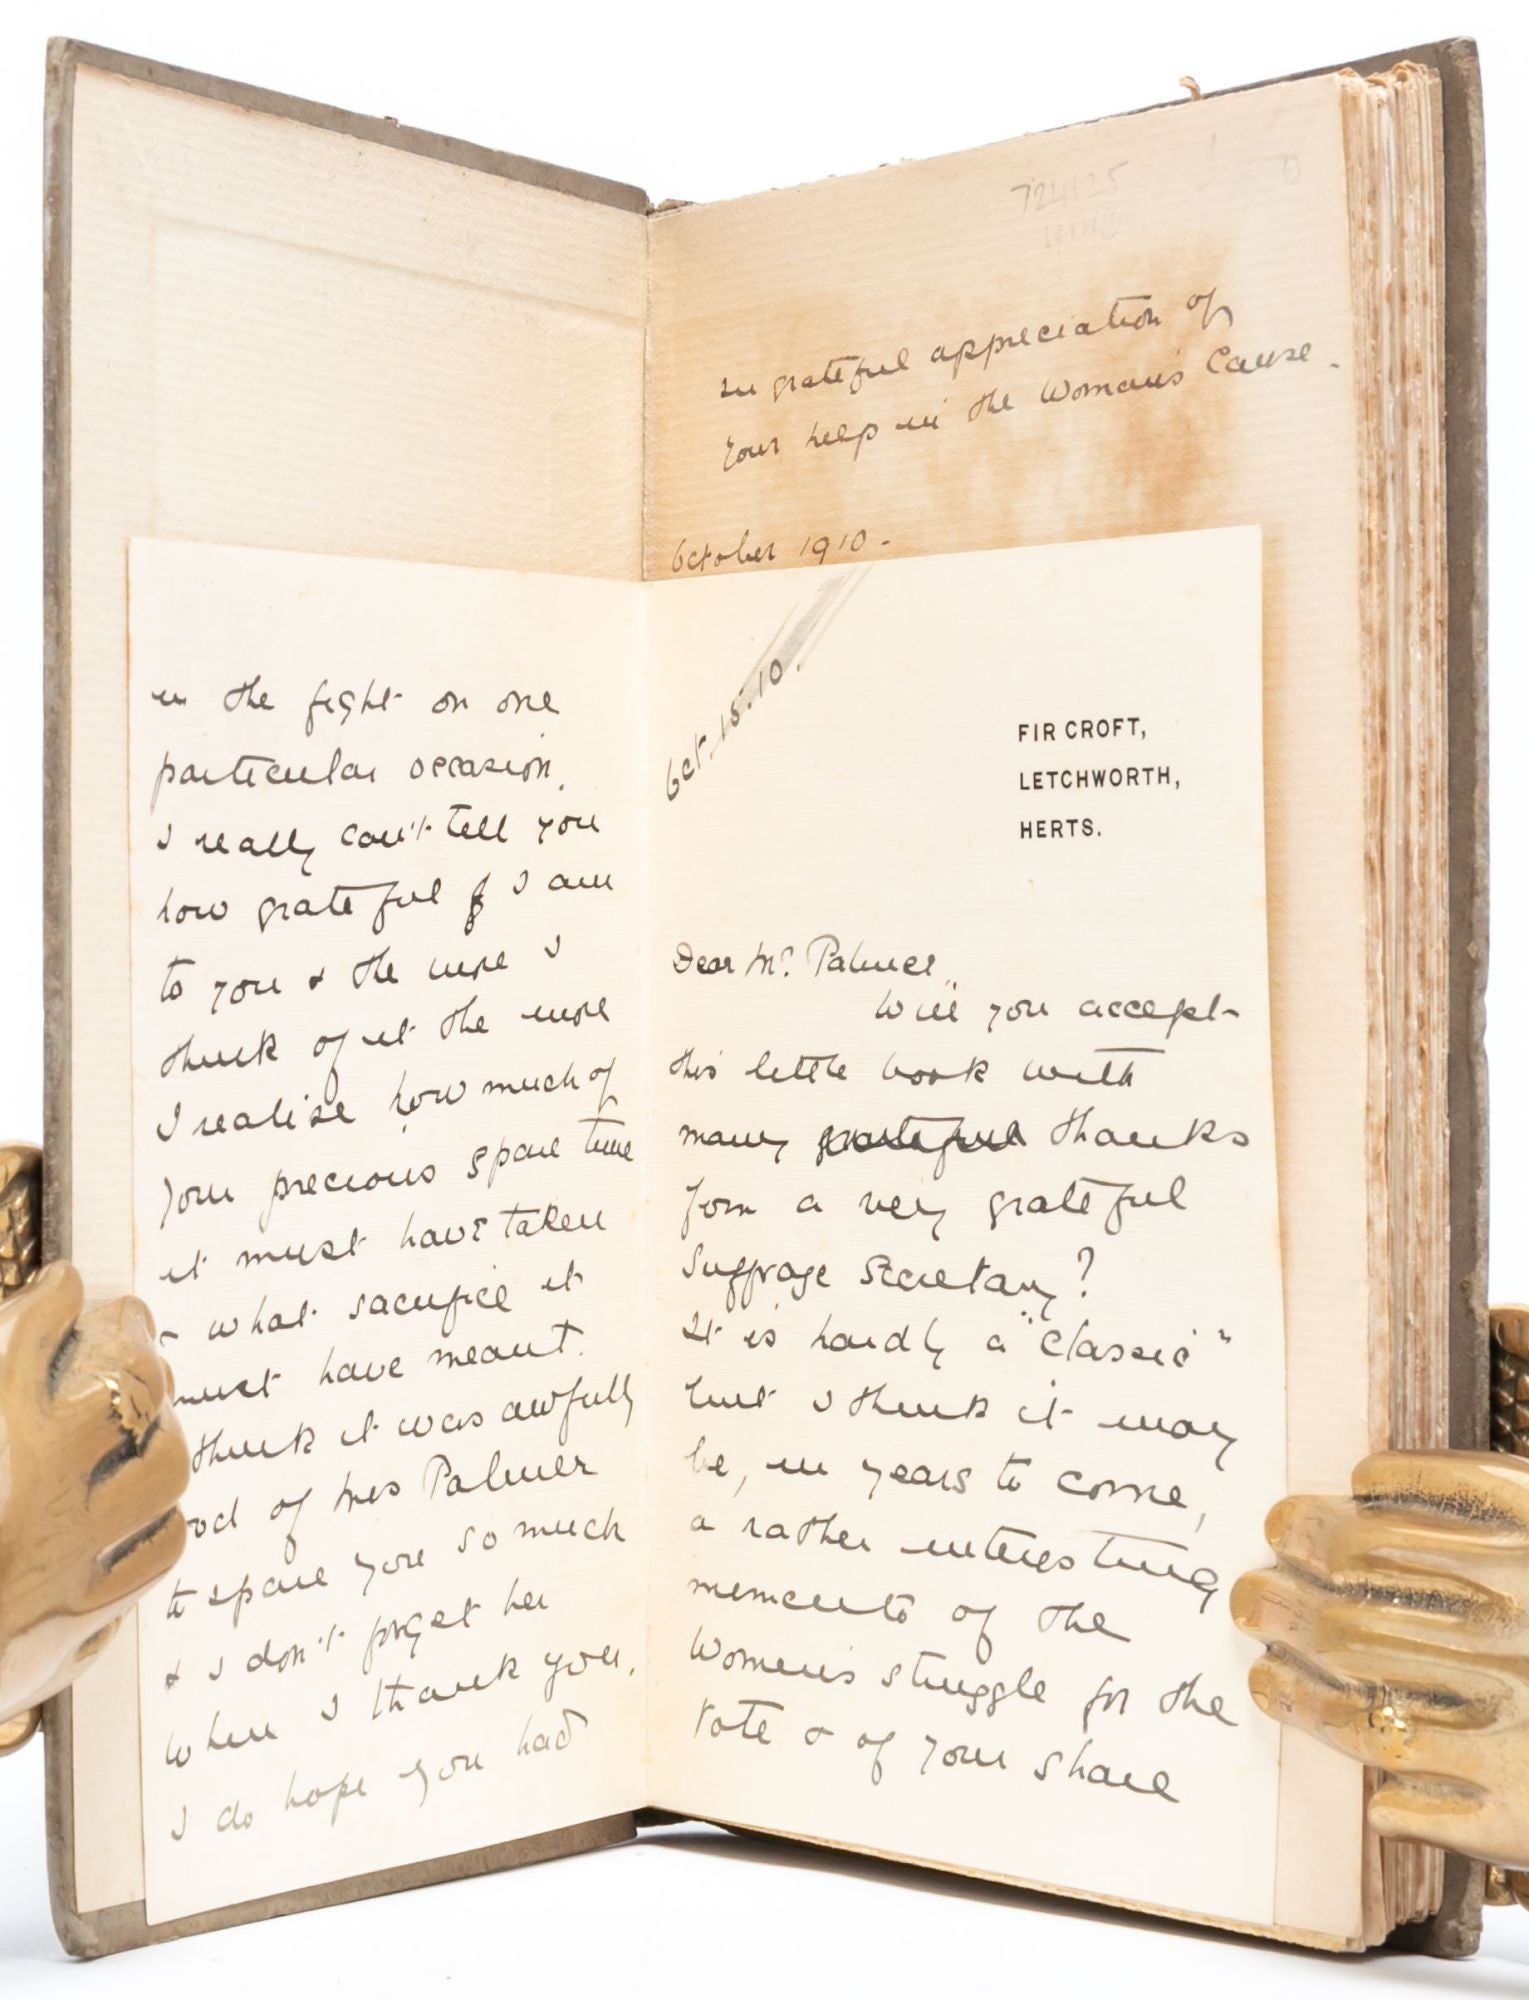 724125
In grateful appreciation of
your help in the Woman's Cause.
October 1910.
Oct. 15. 10.
FIR CROFT,
LETCHWORTH,
HERTS.
Dear Mr. Palmer,
Will you accept
this little book with
many grateful thanks
from a very grateful
Suffrage Secretary?
It is hardly a "classic"
but I think it may
be, in years to come,
a rather interesting
memento of the
Women's struggle for the
Vote & of your share
in the fight on one
particular occasion.
I really can't tell you
how grateful I am
to you & the more I
think of it the more
I realise how much of
your precious spare time
it must have taken
& what sacrifice it
must have meant.
think it was awfully
ood of Mrs Palmer
to spare you so much
& I don't forget her
when I thank you.
I do hope you had